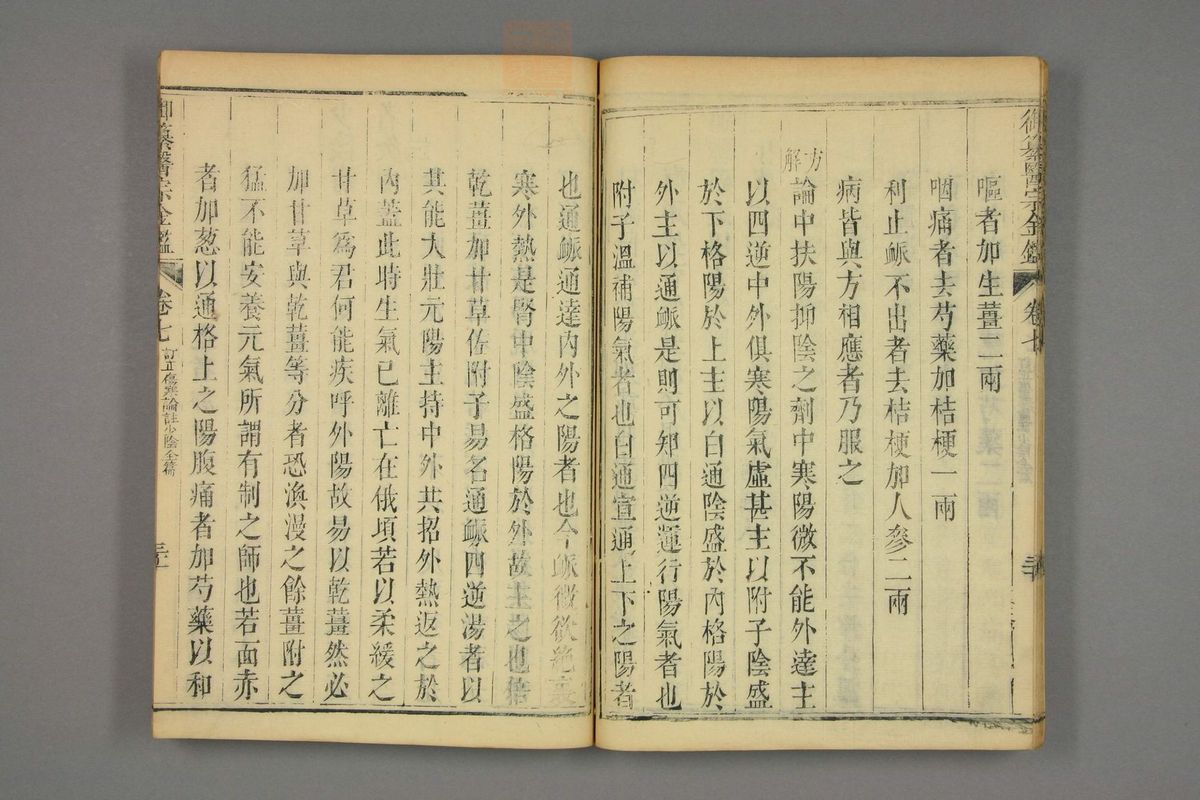 御纂醫宗金鑑
卷七
嘔者加生薑二兩
咽痛者去芍藥加桔梗一兩
利止脈不出者去桔梗加人參二兩
病皆與方相應者乃服之
方解
論中扶陽抑陰之劑中寒陽微不能外達主
以四逆中外俱寒陽氣虛甚主以附子陰盛
於下格陽於上主以白通陰盛於內格陽於
外主以通脈是則可知四逆運行陽氣者也
附子溫補陽氣者也白通宣通上下之陽者
也通脈通達內外之陽者也今脈微欲絕裏
寒外熱是腎中陰盛格陽於外故主之也倍
乾薑加甘草佐附子易名通脈四逆湯者以
其能大壯元陽主持中外共招外熱返之於
內蓋此時生氣已離亡在俄頃若以柔緩之
甘草爲君何能疾呼外陽故易以乾薑然必
加甘草與乾薑等分者恐渙漫之餘薑附之
猛不能安養元氣所謂有制之師也若面赤
者加葱以通格上之陽腹痛者加芍藥以和
御纂醫宗金鑑
卷七
訂正傷寒論註少陰全篇